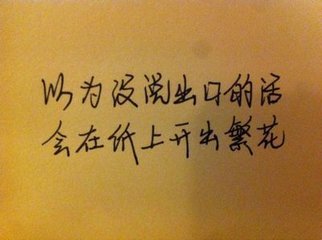 以为没说出口的话
会在纸上开出繁花